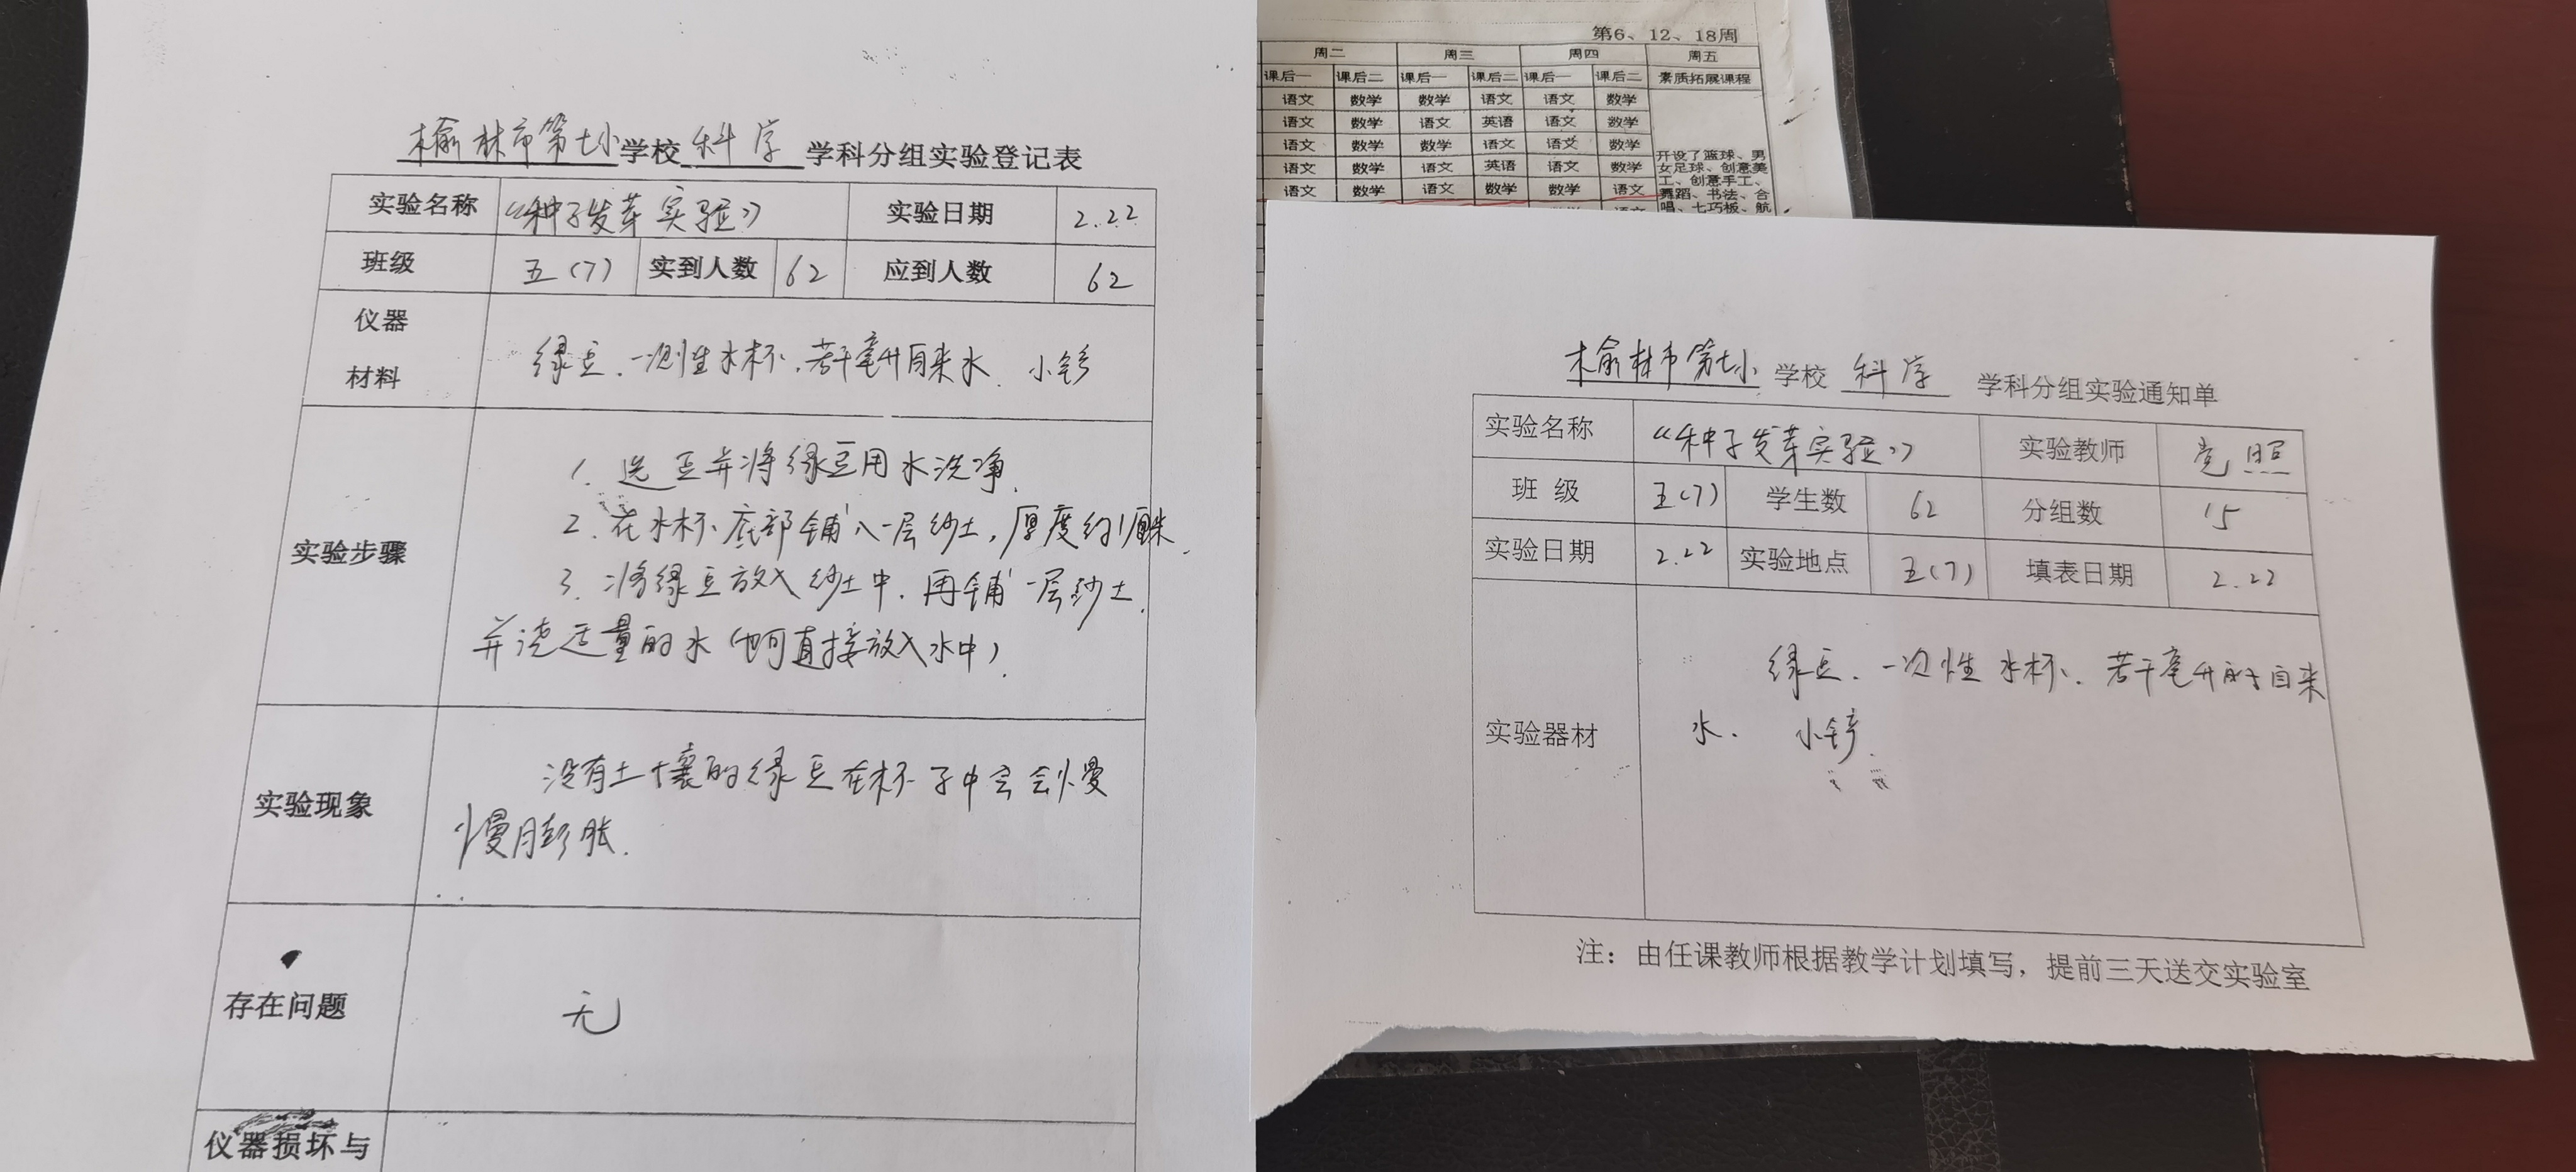 榆林市第七小学校 科学 学科分组实验登记表
实验名称 《种子发芽实验》 实验日期 2.22
班级 五(7) 实到人数 62 应到人数 62
仪器
材料
绿豆、一次性水杯、若干毫升自来水、小铲
实验步骤
1. 选豆并将绿豆用水洗净.
2. 在水杯底部铺入一层沙土,厚度约1厘米.
3. 将绿豆放入沙土中.再铺一层沙土.
并浇适量的水(也可直接放入水中).
实验现象
没有土壤的绿豆在杯子中会会慢
慢膨胀.
存在问题
无
仪器损坏与
第6、12、18周
周二 周三 周四 周五
课后一 课后二 课后一 课后二 课后一 课后二 素质拓展课程
语文 数学 数学 语文 语文 数学
语文 数学 语文 英语 语文 数学
语文 数学 数学 语文 语文 数学
语文 数学 语文 英语 语文 数学
语文 数学 语文 数学 数学 语文
开设了篮球、男
女足球、创意美
工、创意手工、
舞蹈、书法、合
唱、七巧板、航
榆林市第七小 学校 科学 学科分组实验通知单
实验名称 《种子发芽实验》 实验教师 照
班 级 五(7) 学生数 62 分组数 15
实验日期 2.22 实验地点 五(7) 填表日期 2.22
实验器材
绿豆、一次性水杯、若干毫升的自来
水、小铲.
注：由任课教师根据教学计划填写，提前三天送交实验室